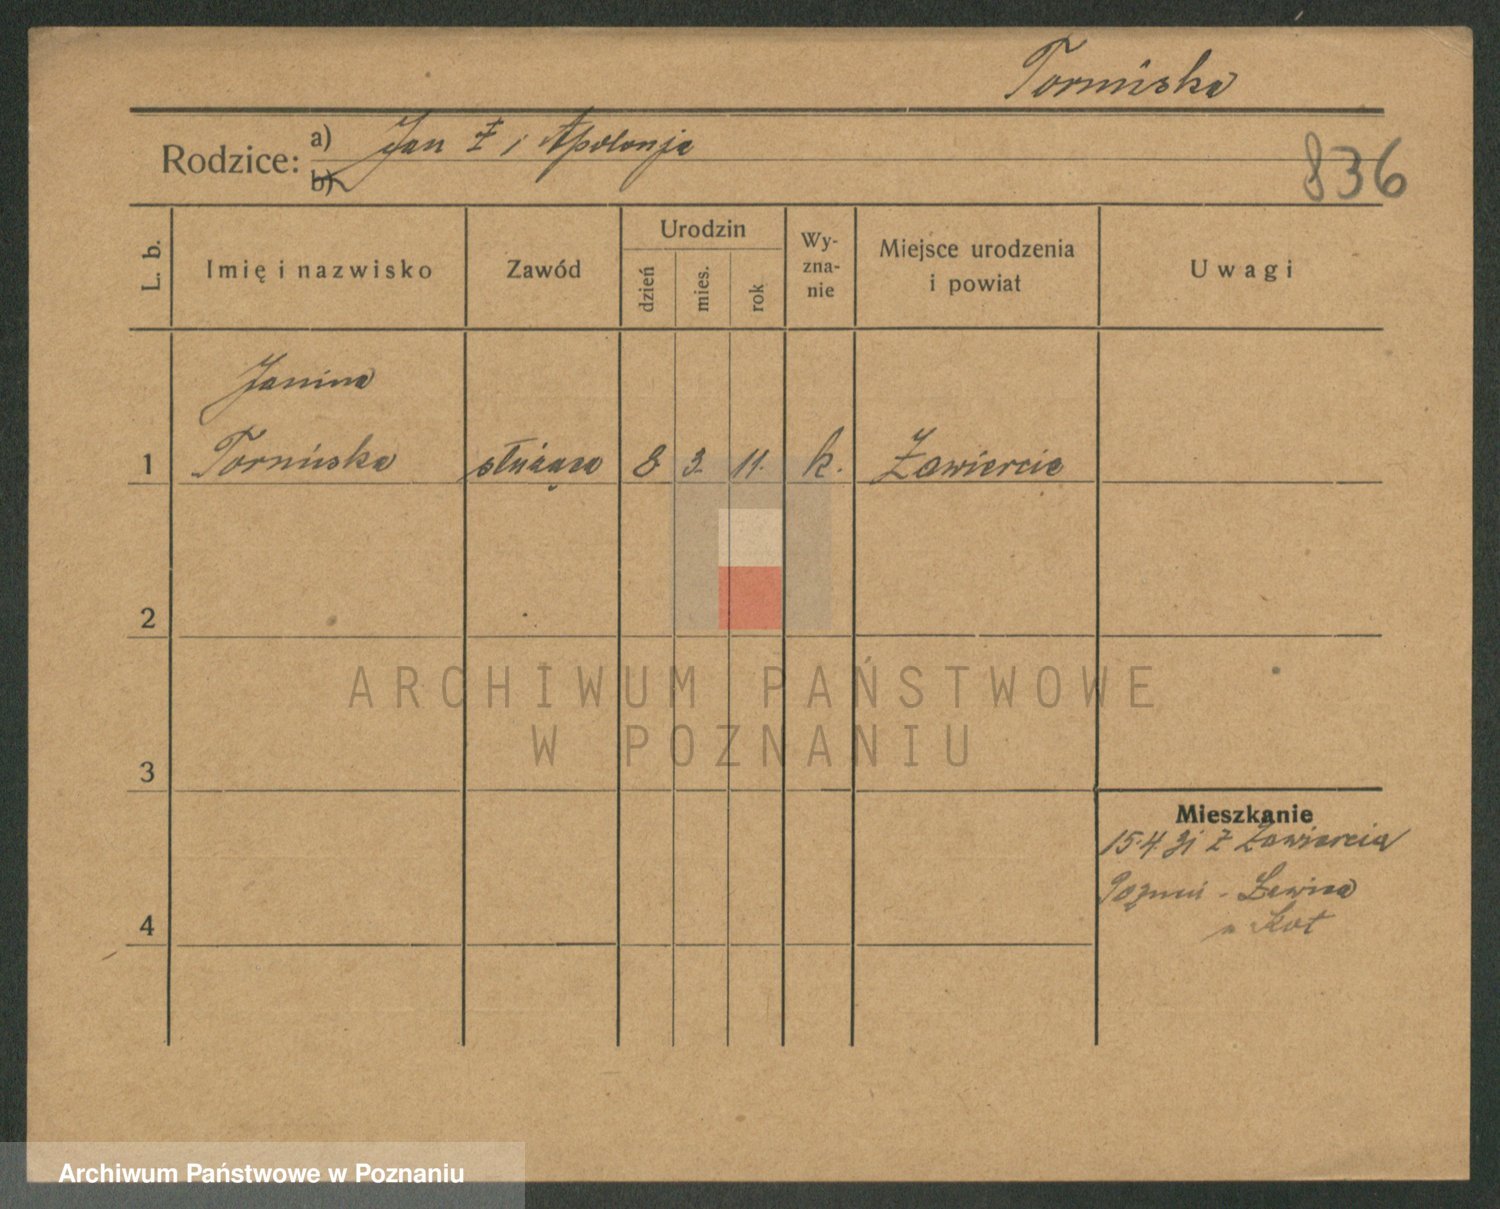 Tornúska
Rodzice: a) Jan Ł i Apolonja
b)
836
L. b.
Imię i nazwisko
Zawód
Urodzin
dzień
mies.
rok
Wy-
zna-
nie
Miejsce urodzenia
i powiat
Uwagi
Janina
1 Tornúska służąca 8 3. 11. k. Zawiercie
2
3
4
Mieszkanie
15.4 31 z Zawiercia
Ławica
Kot
ARCHIWUM PAŃSTWOWE
W POZNANIU
Archiwum Państwowe w Poznaniu